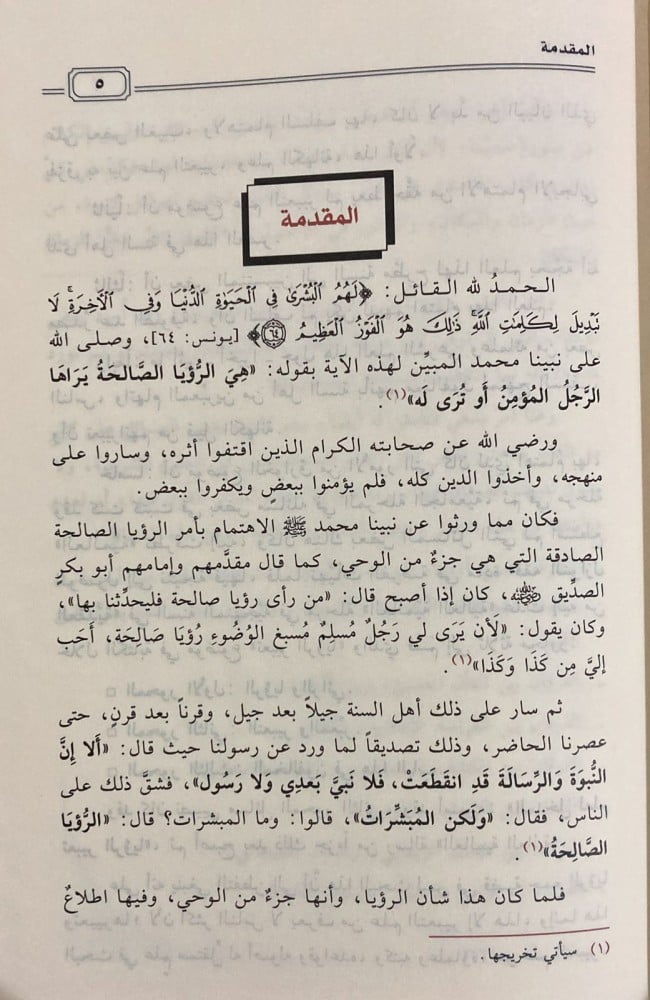 المقدمة
٥
المقدمة
الحمدُ لله القائل: ﴿لَهُمُ الْبُشْرَىٰ فِي الْحَيَوٰةِ الدُّنْيَا وَفِي الْآخِرَةِ ۚ لَا
تَبْدِيلَ لِكَلِمَٰتِ اللَّهِ ۚ ذَٰلِكَ هُوَ الْفَوْزُ الْعَظِيمُ ۝٦٤﴾ [يونس: ٦٤]، وصلى الله
على نبينا محمد المبيِّن لهذه الآية بقوله: «هِيَ الرُّؤيَا الصَّالحَةُ يَرَاهَا
الرَّجُلُ المُؤمِنُ أَو تُرَى لَه»(١).
ورضي الله عن صحابته الكرام الذين اقتفوا أثره، وساروا على
منهجه، وأخذوا الدين كله، فلم يؤمنوا ببعضٍ ويكفروا ببعض.
فكان مما ورثوا عن نبينا محمد ﷺ الاهتمام بأمر الرؤيا الصالحة
الصادقة التي هي جزءٌ من الوحي، كما قال مقدَّمهم وإمامهم أبو بكرٍ
الصدِّيق رضي الله عنه، كان إذا أصبح قال: «من رأى رؤيا صالحة فليحدِّثنا بها»،
وكان يقول: «لَأن يَرَى لي رَجُلٌ مُسلِمٌ مُسبغ الوُضُوءِ رُؤيَا صَالِحَة، أَحَب
إليَّ مِن كَذَا وَكَذَا»(١).
ثم سار على ذلك أهل السنة جيلاً بعد جيل، وقرناً بعد قرنٍ، حتى
عصرنا الحاضر، وذلك تصديقاً لما ورد عن رسولنا حيث قال: «أَلا إِنَّ
النُّبوَةَ وَالرِّسَالَةَ قَد انقَطَعَتْ، فَلا نَبيَّ بَعدِي وَلا رَسُول»، فشقَّ ذلك على
الناس، فقال: «وَلَكن المُبَشِّرَاتُ»، قالوا: وما المبشرات؟ قال: «الرُّؤيَا
الصَّالحَةُ»(١).
فلما كان هذا شأن الرؤيا، وأنها جزءٌ من الوحي، وفيها اطلاعٌ
(١) سيأتي تخريجها.